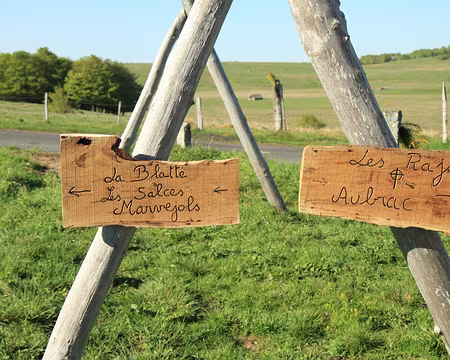 La Blatte
Les Salces
Marvejols
Les
Aubrac